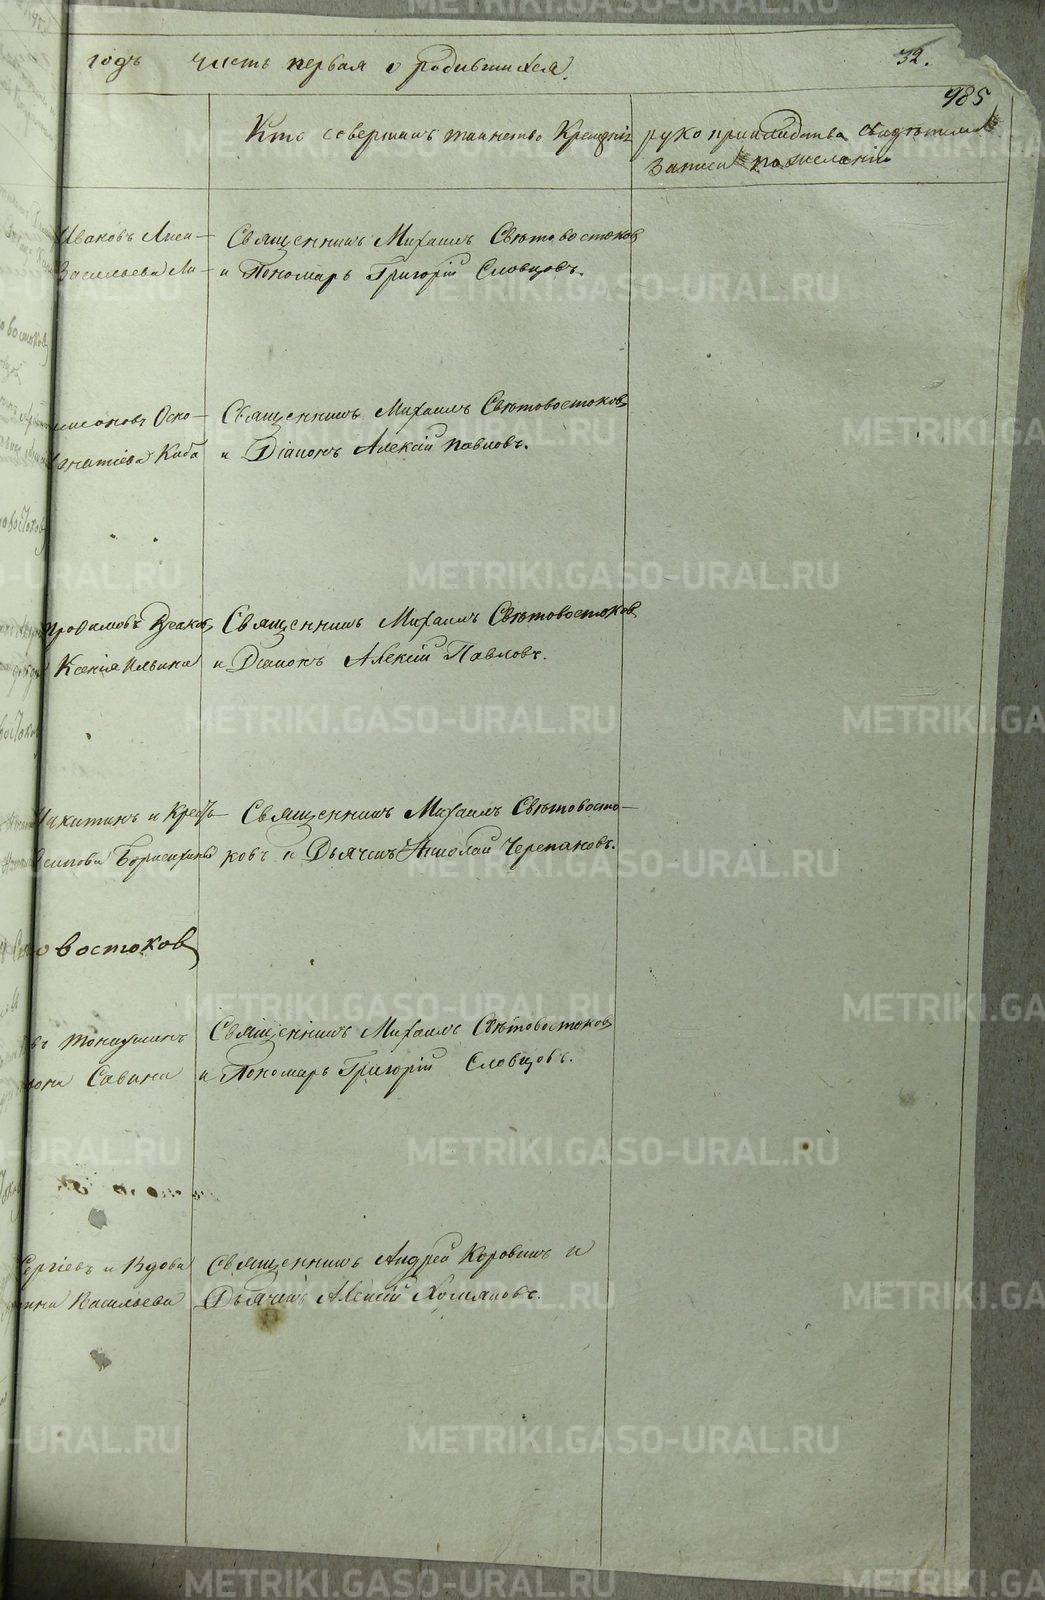 годъ часть первая о родившихся.
32.
985
Кто совершалъ таинство Крещенія
рукоприкладства свидѣтелей
записи по желанію
Ивановъ Лиса-
Васильева Ли-
Священникъ Михаилъ Свѣтовостоковъ
и Пономарь Григорій Словцовъ.
Оско-
Игнатіева Каба
Священникъ Михаилъ Свѣтовостоковъ
и Діаконъ Алексій Павловъ.
Русаковъ
Ксенія Ильина
Священникъ Михаилъ Свѣтовостоковъ
и Діаконъ Алексій Павловъ.
Никитинъ и Крест-
Осипова
Священникъ Михаилъ Свѣтовосто-
ковъ и Дьячекъ Николай Черепановъ.
востоковъ
Савина
Священникъ Михаилъ Свѣтовостоковъ
и Пономарь Григорій Словцовъ.
Сергіевъ и Вдова
Васильева
Священникъ Андрей Коровинъ и
Дьячекъ Алексій
METRIKI.GASO-URAL.RU